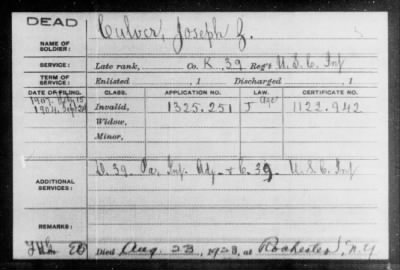 DEAD
NAME OF SOLDIER: Culver, Joseph Z.
SERVICE: Late rank, Co. K. 39 Reg't U.S.C. Inf
TERM OF SERVICE: Enlisted , 1 Discharged , 1
DATE OF FILING. CLASS. APPLICATION NO. LAW. CERTIFICATE NO.
1907
1904 Sept Invalid, 1325.251 J Age 1122.942
Widow,
Minor,
ADDITIONAL SERVICES: D. 39 Inf. Adj. + C. 39 U.S.C. Inf
REMARKS:
Died Aug. 23, 1923, at Rochester, N.Y